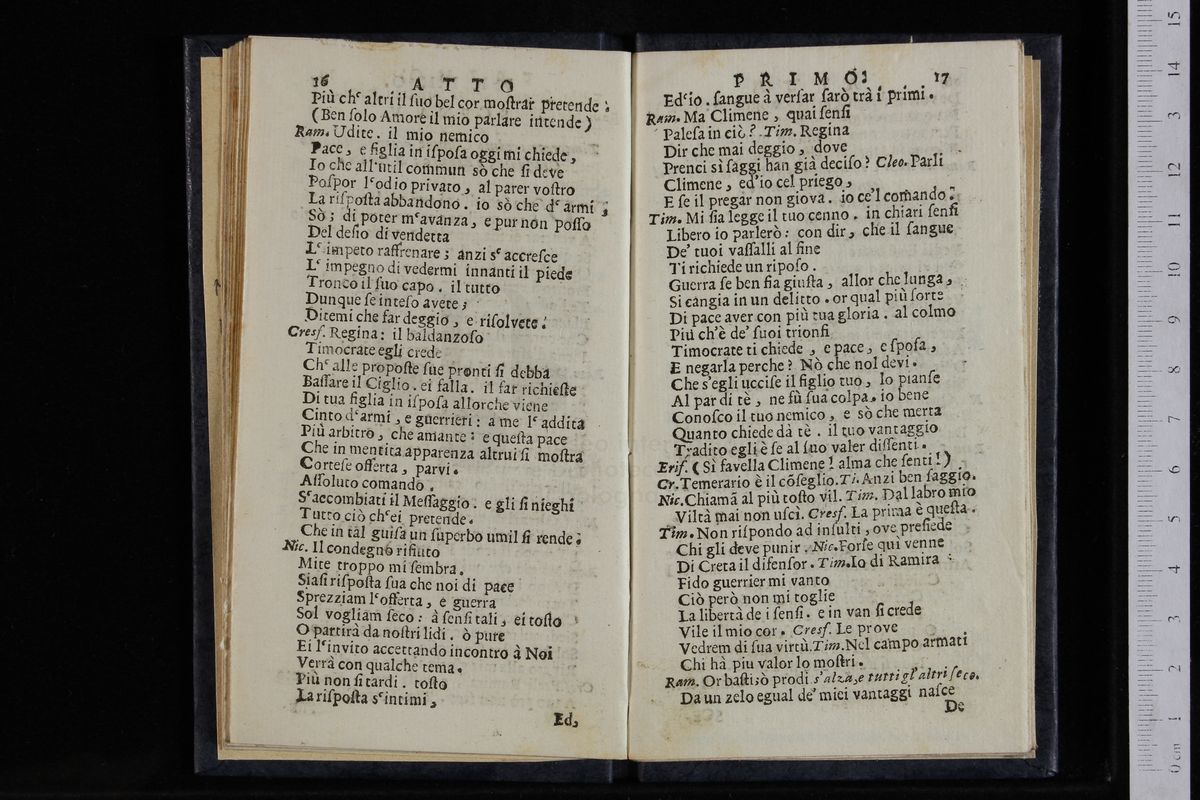 16 ATTO
Più ch' altri il ſuo bel cor moſtrar pretende:
(Ben ſolo Amore il mio parlare intende)
Ram. Udite. il mio nemico
Pace, e figlia in iſpoſa oggi mi chiede,
Io che all'util commun sò che ſi deve
Poſpor l'odio privato, al parer voſtro
La riſpoſta abbandono. io sò che d' armi;
Sò; di poter m'avanza, e pur non poſſo
Del deſio di vendetta
L' impeto raffrenare; anzi s' accreſce
L' impegno di vedermi innanti il piede
Tronco il ſuo capo. il tutto
Dunque ſe inteſo avete;
Ditemi che far deggio, e riſolvete.
Creſ. Regina: il baldanzoſo
Timocrate egli crede
Ch' alle propoſte ſue pronti ſi debba
Baſſare il Ciglio. ei falla. il far richieſte
Di tua figlia in iſpoſa allorche viene
Cinto d'armi, e guerrieri: a me l' addita
Più arbitro, che amante: e queſta pace
Che in mentita apparenza altrui ſi moſtra
Corteſe offerta, parvi.
Aſſoluto comando.
S'accombiati il Meſſaggio. e gli ſi nieghi
Tutto ciò ch'ei pretende.
Che in tal guiſa un ſuperbo umil ſi rende.
Nic. Il condegno rifiuto
Mite troppo mi ſembra.
Siaſi riſpoſta ſua che noi di pace
Sprezziam l'offerta, e guerra
Sol vogliam ſeco: à ſenſi tali, ei toſto
O partirà da noſtri lidi. ò pure
Ei l'invito accettando incontro à Noi
Verrà con qualche tema.
Più non ſi tardi. toſto
La riſpoſta s'intimi,
Ed,
PRIMO. 17
Ed'io. ſangue à verſar ſarò trà i primi.
Ram. Ma Climene, quai ſenſi
Paleſa in ciò? Tim. Regina
Dir che mai deggio, dove
Prenci sì ſaggi han già deciſo? Cleo. Parli
Climene, ed'io cel priego,
E ſe il pregar non giova. io ce'l comãndo.
Tim. Mi ſia legge il tuo cenno. in chiari ſenſi
Libero io parlerò: con dir, che il ſangue
De' tuoi vaſſalli al fine
Ti richiede un ripoſo.
Guerra ſe ben ſia giuſta, allor che lunga,
Si cangia in un delitto. or qual più ſorte
Di pace aver con più tua gloria. al colmo
Più ch'è de' ſuoi trionfi
Timocrate ti chiede, e pace, e ſpoſa,
E negarla perche? Nò che nol devi.
Che s'egli ucciſe il figlio tuo, lo pianſe
Al par di tè, ne fù ſua colpa. io bene
Conoſco il tuo nemico, e sò che merta
Quanto chiede dà tè. il tuo vantaggio
Tradito egli è ſe al ſuo valer diſſenti.
Eriſ. (Si favella Climene! alma che ſenti!)
Cr. Temerario è il cõſeglio. Ti. Anzi ben ſaggio.
Nic. Chiamã al più toſto vil. Tim. Dal labro mio
Viltà mai non uſcì. Creſ. La prima è queſta.
Tim. Non riſpondo ad inſulti, ove preſiede
Chi gli deve punir. Nic. Forſe qui venne
Di Creta il difenſor. Tim. Io di Ramira
Fido guerrier mi vanto
Ciò però non mi toglie
La libertà de i ſenſi. e in van ſi crede
Vile il mio cor. Creſ. Le prove
Vedrem di ſua virtù. Tim. Nel campo armati
Chi hà piu valor lo moſtri.
Ram. Or baſti; ò prodi s'alza, e tutti gl'altri ſeco.
Da un zelo egual de' miei vantaggi naſce
De